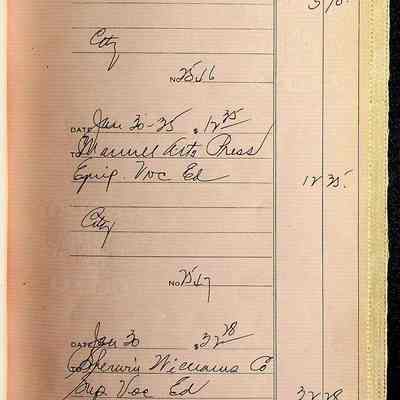 City
No 2516
DATE Jan 30-35 $ 12 35
TO Manual Arts Press
Equip. Voc Ed
12 35.
City
No 2517
DATE Jan 30 $ 32 28
TO Sherwin Williams Co
Sup Voc Ed
32 28